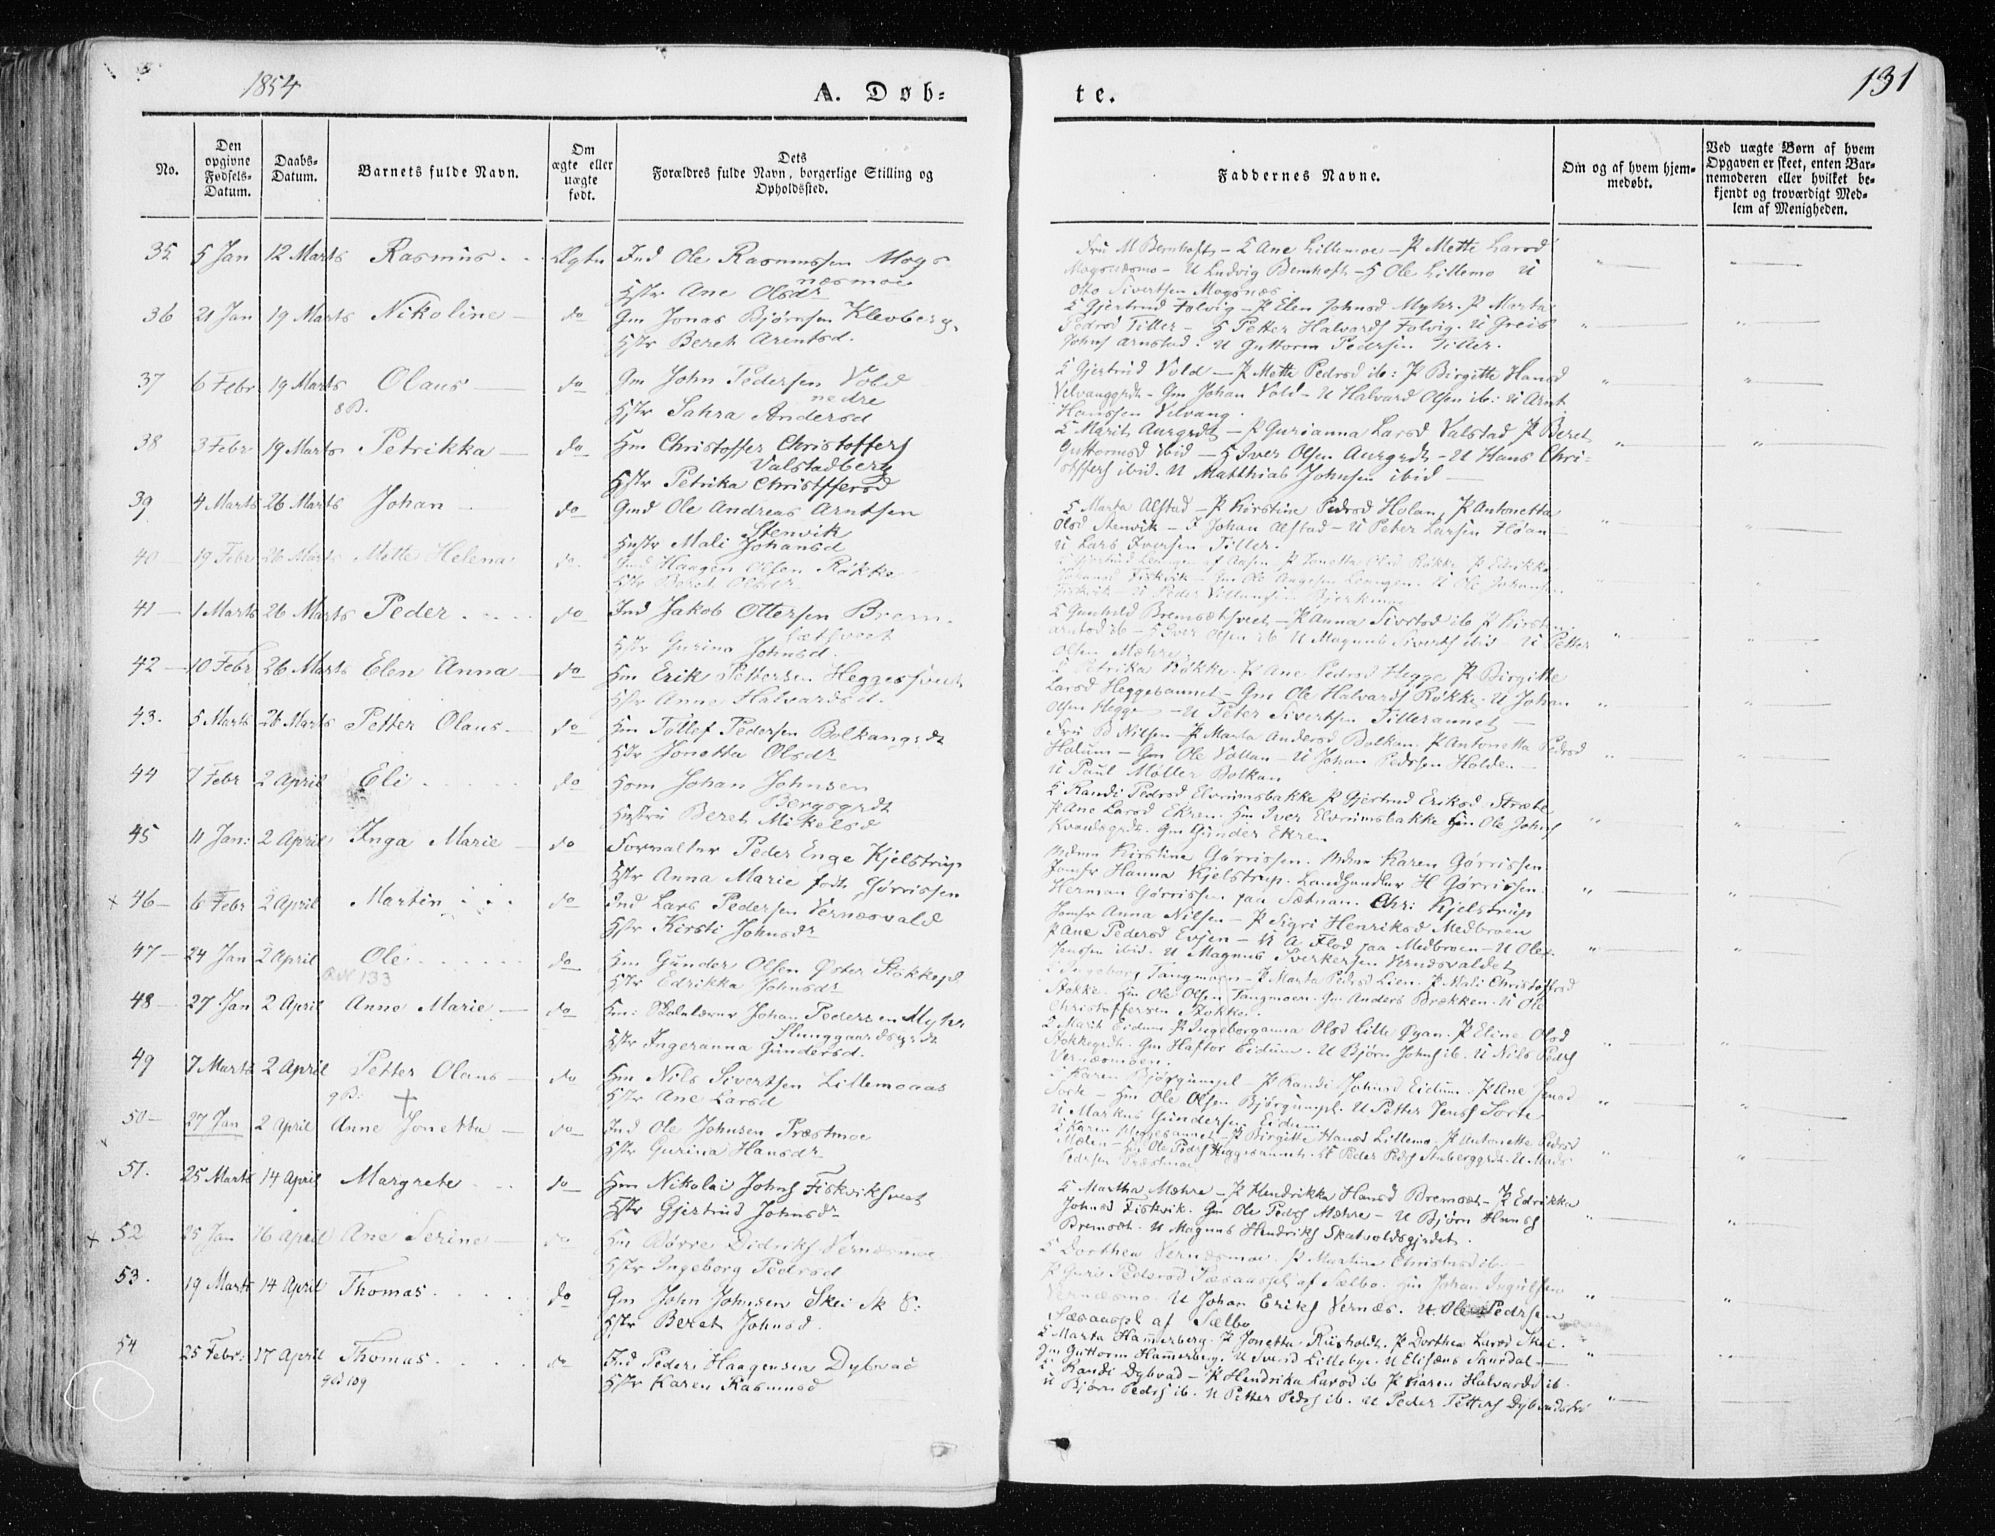 1854
A. Døb-
te.
131
No.
Den opgivne Fødsels-Datum.
Daabs-Datum.
Barnets fulde Navn.
Om ægte eller uægte født.
Dets Forældres fulde Navn, borgerlige Stilling og Opholdssted.
Faddernes Navne.
Om og af hvem hjem-medøbt.
Ved uægte Børn af hvem Opgaven er skeet, enten Bar-nemoderen eller hvilket be-kjendt og troværdigt Med-lem af Menigheden.
35 5 Jan 12 Marts Rasmus Ægte Ind Ole Rasmussen Mogs
næsmoe
Hstr Ane Olsdr
Fru M Bernhoft - K Ane Lillemoe - P Mette Larsd
Mogsnæsmo - U Ludvig Bernhoft - G Ole Lillemo U
Otto Sivertsen Mogsnæs.
36 21 Jan 19 Marts Nikoline do Gm Jonas Bjørnsen Klevberg.
Hstr Beret Arentsd.
K Gjertrud Folvig - P Elen Johnsd Myhr. P Marta
Pedrsd Tiller - G Petter Halvards Folvig. U Greis
Johns Arnstad. U Guttorm Pedersen Tiller.
37 6 Febr 19 Marts Olaus do Gm John Pedersen Vold
8 B.
nedre
Hstr Sahra Andersd
K Gjertrud Vold - P Mette Pedrsd ib: P Birgitte Hansd
Velvanggrdt - Gm Johan Vold - U Halvard Olsen ib: U Arnt
Hanssen Velvang.
38 3 Febr 19 Marts Petrikka do Hm Christoffer Christoffers
Valstadberg
Hstr Petrika Christffersd
K Marit Aurgrdt - P Gurianna Larsd Valstad P Beret
Guttormsd ibid - G Iver Olsen Aurgrdt - U Hans Chri-
stoffers ibid. U Matthias Johnsen ibid
39 4 Marts 26 Marts Johan do Gmd Ole Andreas Arntsen
Stenvik
Hustr Mali Johansd
K Marta Alstad - P Kirstine Pedrsd Holan, P Antonetta
Olsd Stenvik - G Johan Alstad - U Peter Larsen Hoan
U Lars Iversen Tiller.
40 19 Febr 26 Marts Mette Helena do. Ind Haagen Olsen Røkke
Hstr Beret Olsdr
41 1 Marts 26 Marts Peder do Ind Jakob Ottersen Brem-
sætsveet
Hstr Gurina Johnsd.
K Gunhild Bremsætsveet - P Anna Sivrtsd ib P Kirsten
Arntsd ib - G Iver Olsen ib U Magnus Siverts ibid - U Petter
Olsen Mæhre.
42 10 Febr 26 Marts Elen Anna do Hm Erik Pettersen Heggessveet
Hstr Anne Halvardsd.
K Petrika Røkke. P Ane Pedrsd Hegge P Birgitte
Larsd Heggesaunet - Gm Ole Halvards Røkke. U Johan
Olsen Hegge - U Peter Sivertsen Tilleraunet
43. 5 Marts 26 Marts Petter Olaus do Hm Tollef Pedersen Bolkangrdt
Hstr Jonetta Olsdr
Fru B Nilsen - P Marta Andersd Bolkan. P Antonetta Pedrsd
Holum - Gm Ole Vollan - U Johan Pedrsen Holden
U Paul Møller Bolkan
44 7 Febr 2 April Eli do Hom Johan Johnsen
Bergsgrdt
Hustru Beret Mikelsd
K Randi Pedrsd Elvrumsbakke P Gjertrud Eriksd Stræte
P Ane Larsd Ekren. Hm Iver Elvrumsbakke Hm Ole Johns
Kvandsgrdt. Gm Gunder Ekren
45 11 Jan: 2 April Inga Marie do Forvalter Peder Enge Kjelstrup
Hstr Anna Marie født Gørrissen
Mdme Kirstine Gørrissen. Mdme Karen Gørrissen
Jomfr Hanna Kjelstrup. Landhandler H Gørrissen.
Herman Gørrissen paa Sætnan. Chri Kjelstrup
x 46 6 Febr 2 April Martin do Ind Lars Pedersen Vernæsvald
Hstr Kirsti Johnsdr
Jomfr Anna Nilsen - P Sigri Henriksd Medbroen
P Ane Pedersd Evjen - U A Flod paa Medbroen - U Ole
Jenssen ibid. U Magnus Sverkersen Vernæsvaldet
47 24 Jan 2 April Ole do Hm Gunder Olsen Øster Stokkepl
133
Hstr Edrikka Johnsdr
K Ingeborg Tangmoen - P Marta Pedrsd Lien. P Mali Christofsd
Stokke. Hm Ole Olsen Tangmoen. Gm Anders Brækken. U Ole
Christoffersen Stokke.
48 27 Jan 2 April Anne Marie do Hm: Skolelærer Johan Pedersen Myhr
Slunggaardsgrdt
Hstr Ingeranna Gundersd.
K Marit Eidum P Ingeborganna Olsd Lille Øyan. P Eline Olsd
Stokkegrdt. Gm Haftor Eidum. U Bjørn Johns ib. U Nils Peders
Vernæsmoen.
49 7 Marts 2 April Petter Olaus do Hm Nils Sivertsen Lillemoaas
9 B.
Hstr Ane Larsd
K Karen Bjørgumpl - P Randi Johnsd Eidum. P Ane Jensd
Sorte - Hm Ole Olsen Bjørgumpl. U Petter Jens Sorte
U Markus Gundersen Eidum
50 27 Jan 2 April Anne Jonetta do Ind Ole Johnsen Præstmoe
Hstr Gurina Hansdr
K Karen Heggesaunet - P Birgitte Hansd Lillemo. P Antonette Pedrsd
Mælen - Hm Ole Peders Heggesaunet. U Peder Peders Stubergrdt. U Mads
Pedersen Præstmoe
51. 25 Marts 14 April Margrete do Hm Nikolai Johns Fiskviksveet
Hstr Gjertrud Johnsdr
K Martha Mæhre - P Hendrikka Hansd Bremsæt - P Edrikka
Johnsd Fiskvik. Gm Ole Peders Mæhre - U Bjørn Hans
Bremsæt. U Magnus Hendriks Skatvoldsgjrdet.
x 52 25 Jan 16 April Ane Serine do Hm Børre Didriks Vernæsmoe
Hstr Ingeborg Pedrsd
K Dorthea Vernæsmoe. P Martina Christnsd ib.
P Guri Pedersd Sæsaaspl af Sælbo. Gm Johan Ingulfsen
Vernæsmo. U Johan Eriks Vernæs. U Ole Pedrsen
Sæsaaspl af Sælbo
53. 19 Marts 14 April Thomas do Gm John Johnsen Skei
Hstr Beret Johnsd.
K Marta Hammerberg. P Jonetta Risholdt. P Dorthea Larsd Skei.
Gm Guttorm Hammerberg. U Sivrd Lillebye. U Elisæus Skurdal
54 25 Febr: 17 April Thomas do Ind Peder Haagensen Dybvad
109
Hstr Karen Rasmusd
K Randi Dybvad - P Hendrika Larsd ib P Karen Halvardsd ib.
U Bjørn Peders ib. U Petter Peders ib. U Peder Petters